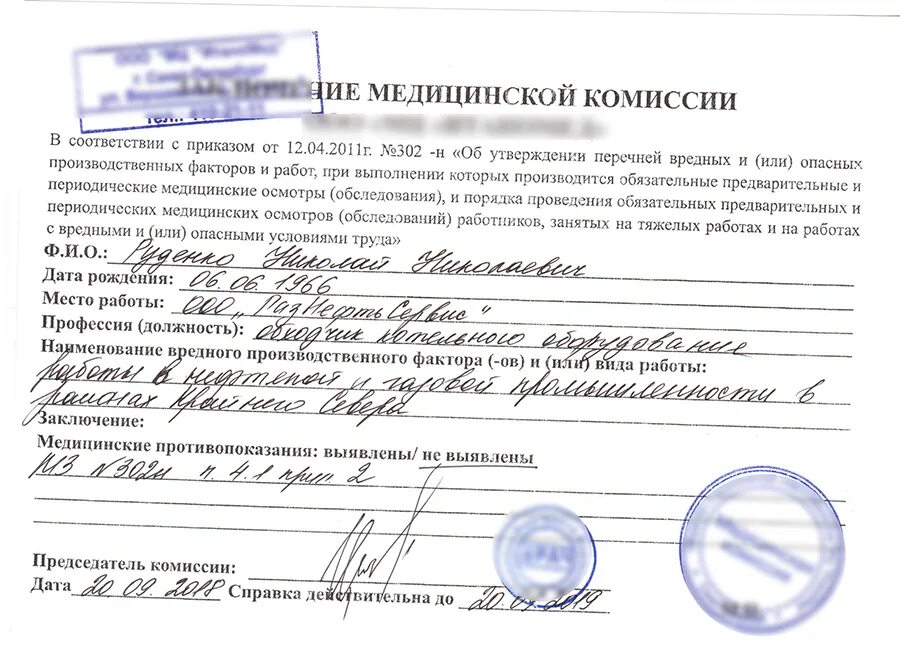 ЗАКЛЮЧЕНИЕ МЕДИЦИНСКОЙ КОМИССИИ
В соответствии с приказом от 12.04.2011г. №302 -н «Об утверждении перечней вредных и (или) опасных
производственных факторов и работ, при выполнении которых производится обязательные предварительные и
периодические медицинские осмотры (обследования), и порядка проведения обязательных предварительных и
периодических медицинских осмотров (обследований) работников, занятых на тяжелых работах и на работах
с вредными и (или) опасными условиями труда»
Ф.И.О.: Руденко Николай Николаевич
Дата рождения: 06.06.1966
Место работы: ООО "ГазНефтьСервис"
Профессия (должность): обходчик котельного оборудование
Наименование вредного производственного фактора (-ов) и (или) вида работы:
работы в нефтепой и газовой промышленности в
районах Крайнего Севера
Заключение:
Медицинские противопоказания: выявлены/ не выявлены
МЗ №302н п. 4.1 прил 2
Председатель комиссии:
Дата 20.09.2018 Справка действительна до 20.09.2019